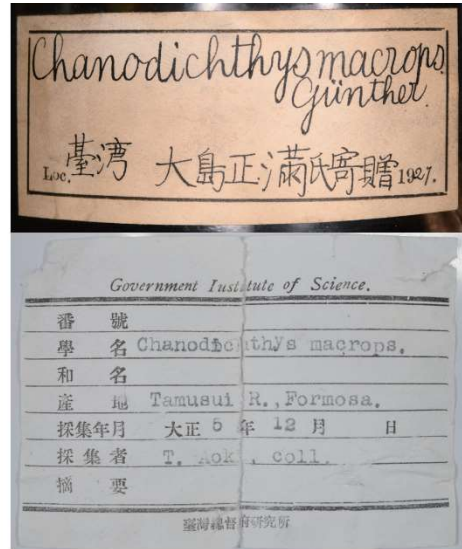 Chanodichthys macrops.
Günther.
Loc. 臺湾 大島正満氏寄贈 1927.
Government Institute of Science.
番 號
學 名 Chanodichthys macrops.
和 名
產 地 Tamusui R., Formosa.
採集年月 大正 5 年 12 月 日
採集者 T. Aoki, coll.
摘 要
臺灣總督府研究所